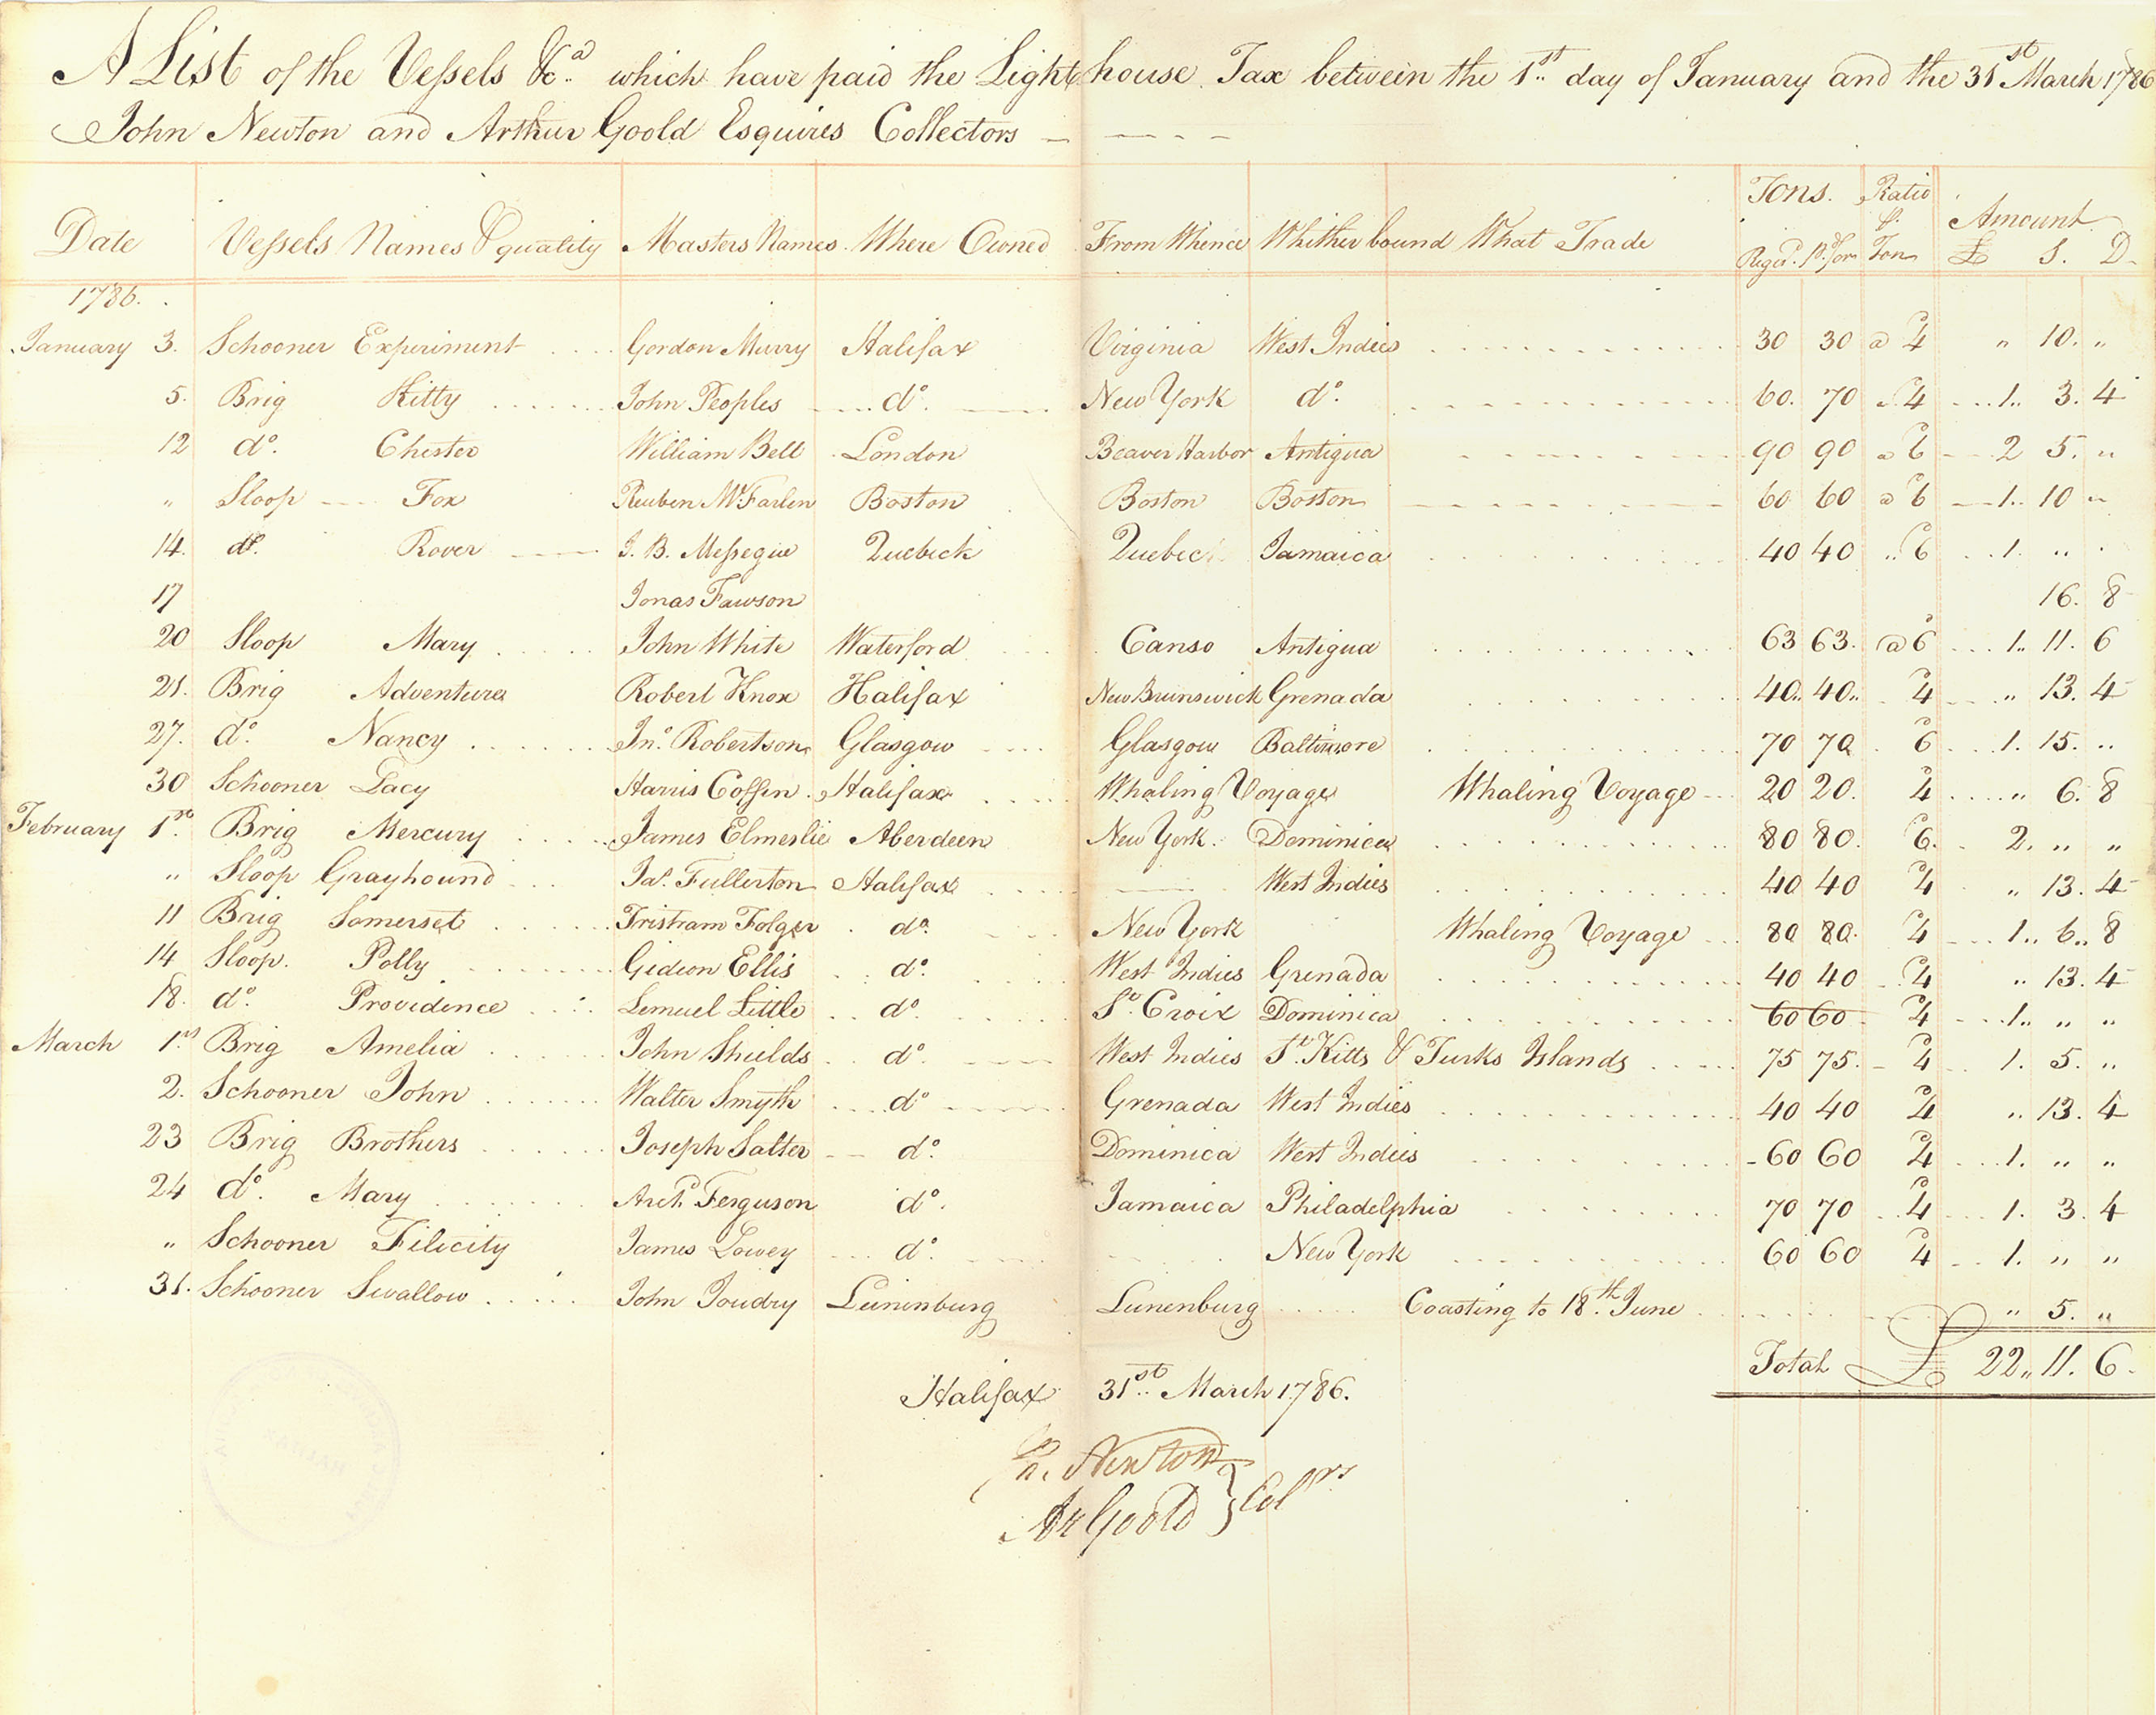 A List of the Vessels &c.a which have paid the Light house Tax between the 1st day of January and the 31st March 1786
John Newton and Arthur Goold Esquires Collectors
Date Vessels Names & quality Masters Names Where Owned From Whence Whither bound What Trade Tons. Regd. Ratio Ton Amount £ S. D.
1786.
January 3. Schooner Experiment Gordon Murry Halifax Virginia West Indies 30 30 @ 4 " 10. "
5. Brig Kitty John Peoples do. New York do. 60. 70 4 1. 3. 4
12 do. Chester William Bell London Beaver Harbor Antigua 90 90 @ 6 2 5. "
" Sloop Fox Reuben McFarlen Boston Boston Boston 60 60 @ 6 1. 10 "
14. do. Rover J. B. Messegue Quebeck Quebec Jamaica 40 40 " 6 1. " "
17 Jonas Fawson 16. 8
20 Sloop Mary John White Waterford Canso Antigua 63 63. @ 6 1. 11. 6
21. Brig Adventure Robert Knox Halifax New Brunswick Grenada 40. 40. 4 " 13. 4
27. do. Nancy Jno. Robertson Glasgow Glasgow Baltimore 70 70 6 1. 15. "
30 Schooner Lacy Harris Coffin Halifax Whaling Voyage Whaling Voyage 20 20. 4 " 6. 8
February 1st. Brig Mercury James Elmeslie Aberdeen New York. Dominica 80 80. 6. 2. " "
" Sloop Grayhound Jas. Fullerton Halifax West Indies 40 40 4 " 13. 4
11 Brig Somerset Tristram Folger do. New York Whaling Voyage 80 80. 4 1. 6. 8
14 Sloop. Polly Gideon Ellis do. West Indies Grenada 40 40 4 " 13. 4
18. do. Providence Lemuel Little do. St. Croix Dominica 60 60 4 1. " "
March 1st Brig Amelia John Shields do. West Indies St. Kitts & Turks Islands 75 75. 4 1. 5. "
2. Schooner John Walter Smyth do Grenada West Indies 40 40 4 " 13. 4
23 Brig Brothers Joseph Salter do. Dominica West Indies 60 60 4 1. " "
24 do. Mary Archd. Ferguson do. Jamaica Philadelphia 70 70 4 1. 3. 4
" Schooner Filicity James Lowey do. New York 60 60 4 1. " "
31. Schooner Swallow John Joudry Luninburg Lunenburg Coasting to 18.th June " 5. "
Total £ 22. 11. 6.
Halifax 31st. March 1786.
Jn. Newton
Ar Goold } Colrs